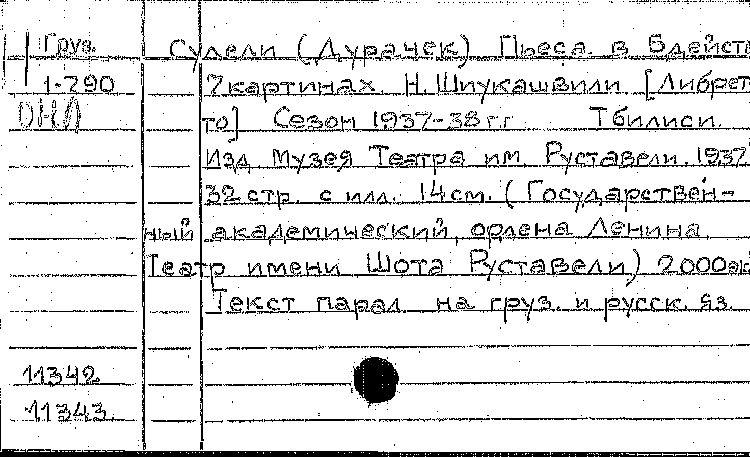 Груз. Сулели (Дурачек) Пьеса. в 5действ
1-290 7картинах. Н. Шиукашвили. [Либрет
то] Сезон 1937-38 гг Тбилиси.
Изд. Музея Театра им. Руставели. 1937
32 стр. с илл. 14см. (Государствен-
ный академический, ордена Ленина
Театр имени Шота Руставели) 2000эк
Текст парал. на груз. и русск. яз.
11342
11343.